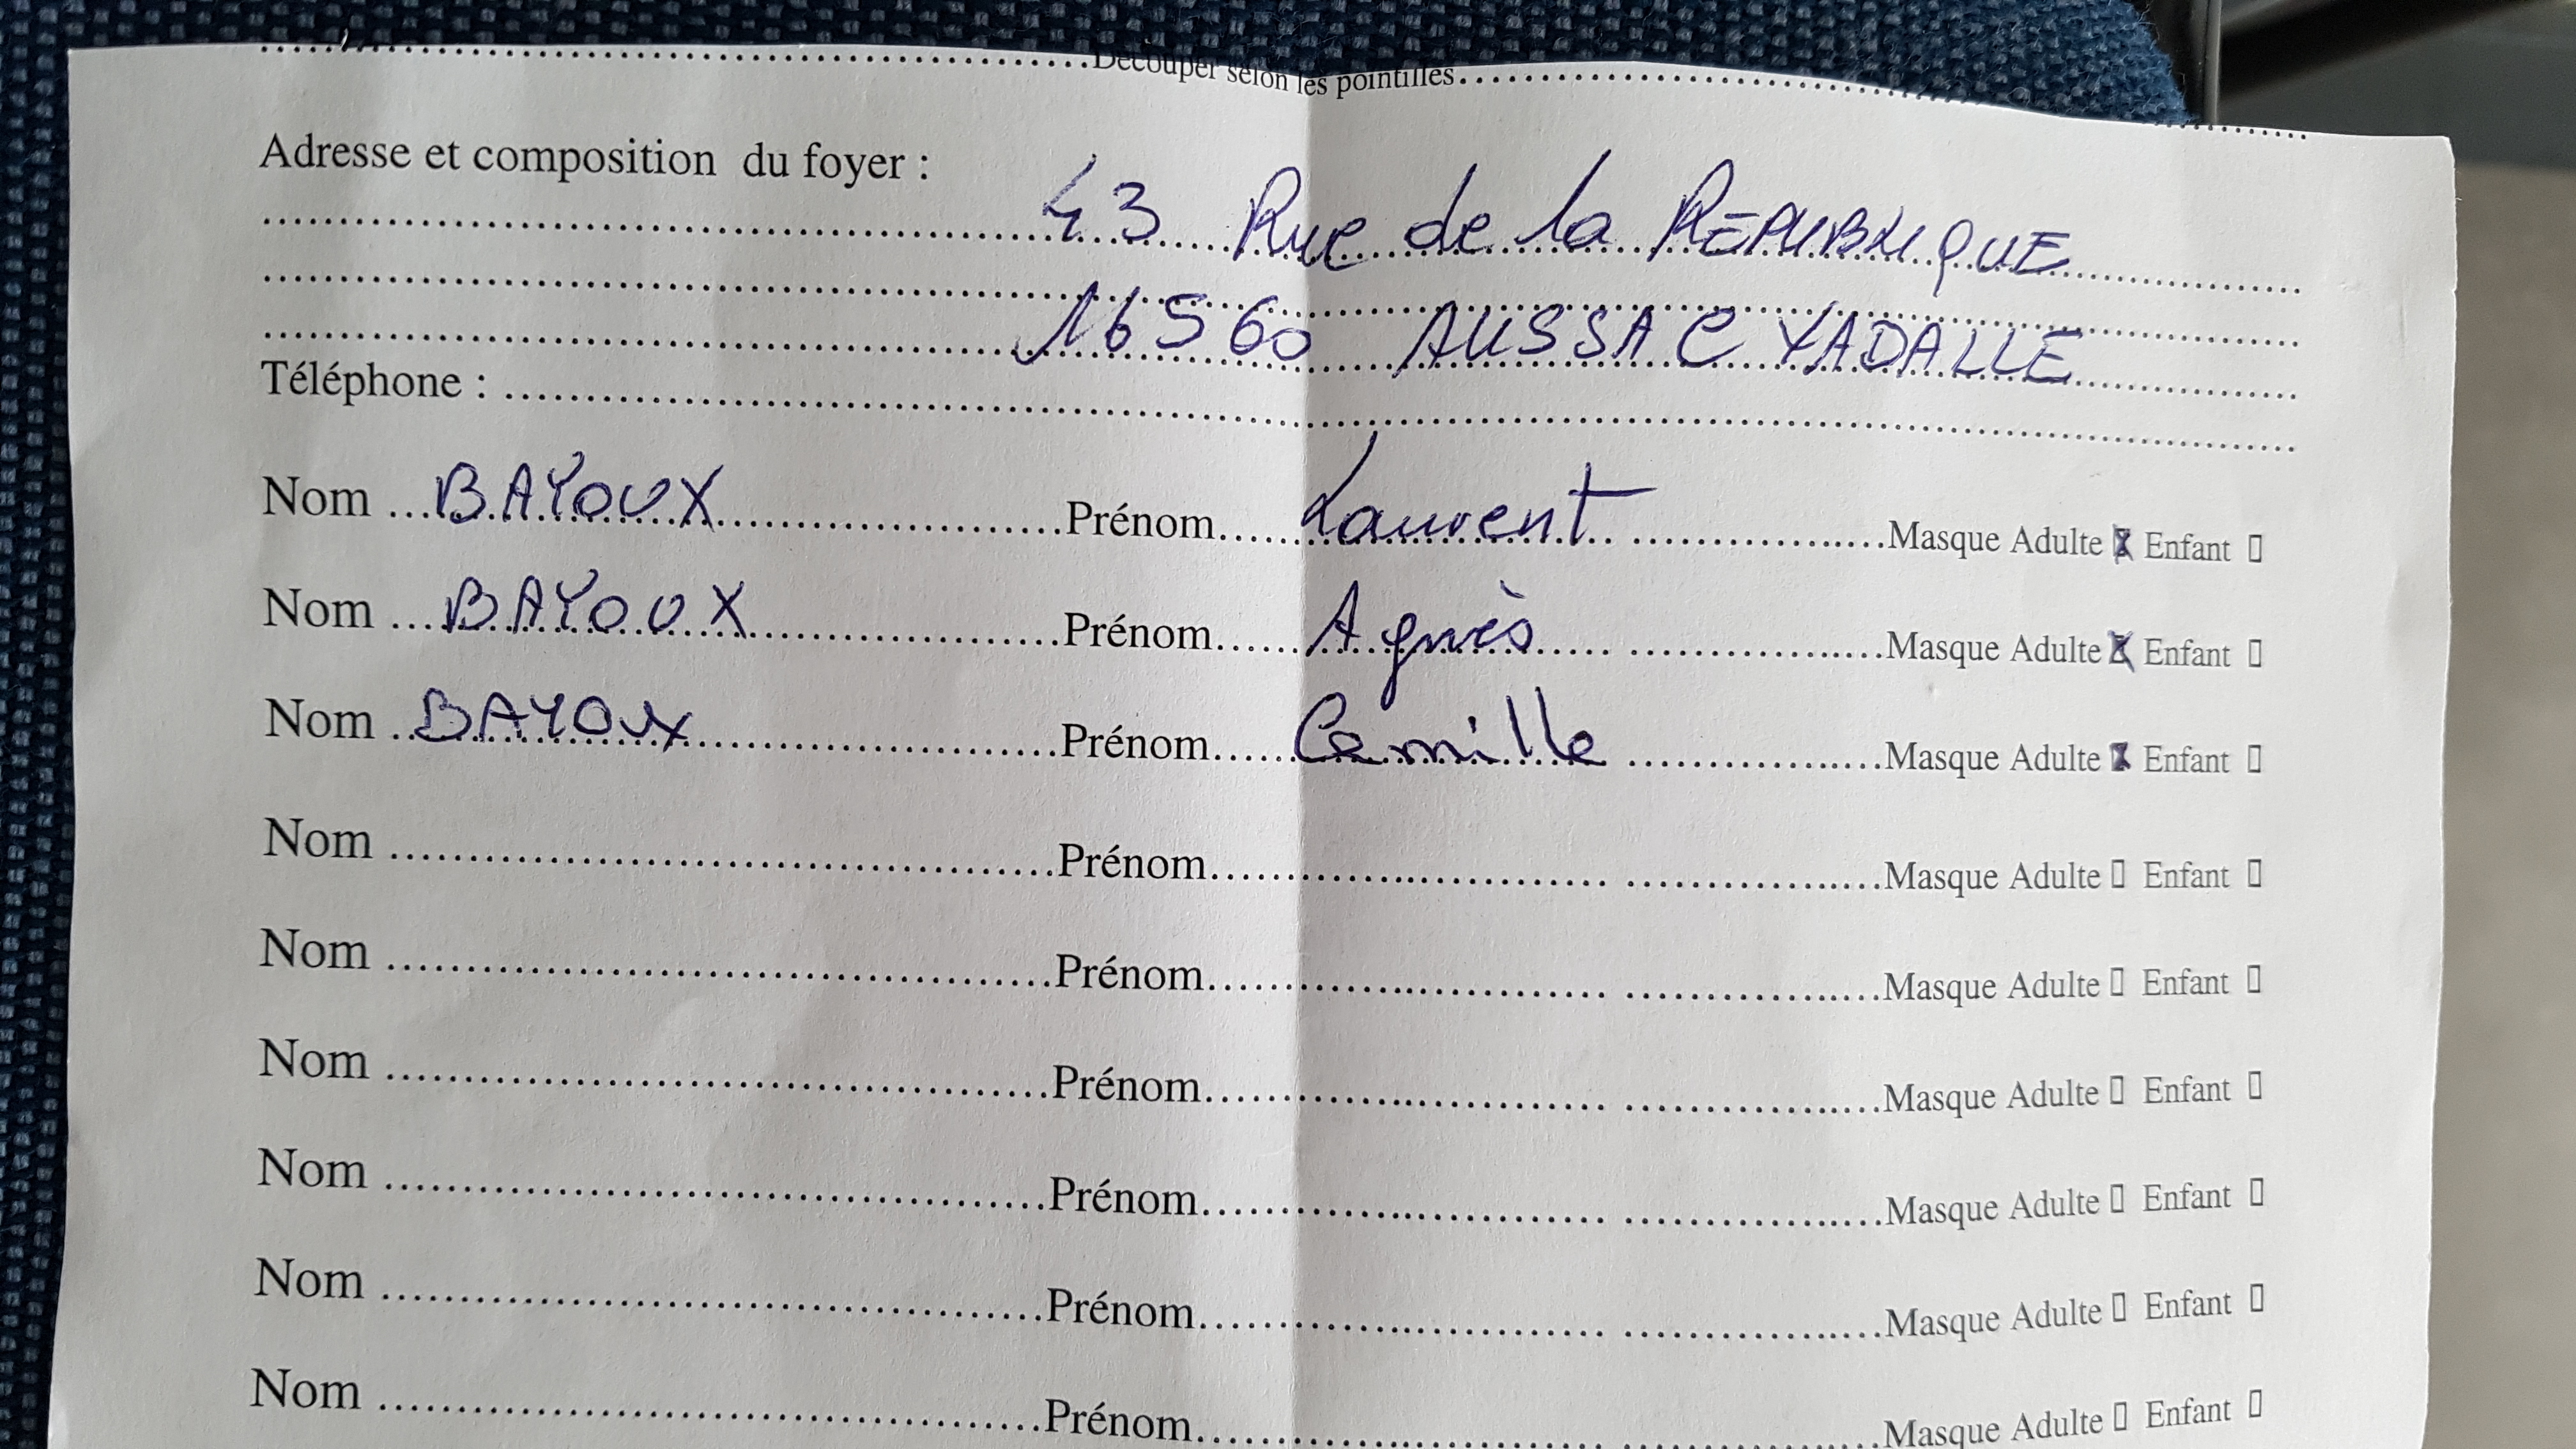 ..........Découper selon les pointillés..........
Adresse et composition du foyer :
43 Rue de la RÉPUBLIQUE
16560 AUSSAC VADALLE
Téléphone : ..........
Nom ...BAYOUX..........Prénom......Laurent..........Masque Adulte X Enfant ▯
Nom ...BAYOUX..........Prénom......Agnès..........Masque Adulte X Enfant ▯
Nom ...BAYOUX..........Prénom......Camille..........Masque Adulte X Enfant ▯
Nom ..........Prénom..........Masque Adulte ▯ Enfant ▯
Nom ..........Prénom..........Masque Adulte ▯ Enfant ▯
Nom ..........Prénom..........Masque Adulte ▯ Enfant ▯
Nom ..........Prénom..........Masque Adulte ▯ Enfant ▯
Nom ..........Prénom..........Masque Adulte ▯ Enfant ▯
Nom ..........Prénom..........Masque Adulte ▯ Enfant ▯